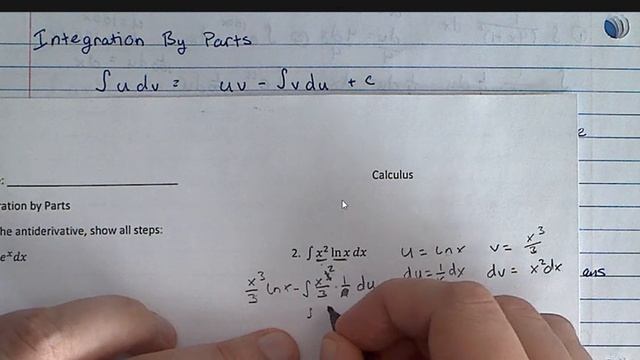 Integration By Parts
∫u dv = uv - ∫v du + c
Calculus
ration by Parts
he antiderivative, show all steps:
eˣdx
2. ∫ x² ln x dx
u = ln x v = x³/3
du = 1/x dx dv = x² dx
ans
x³/3 ln x - ∫ x³/3 · 1/x du
∫